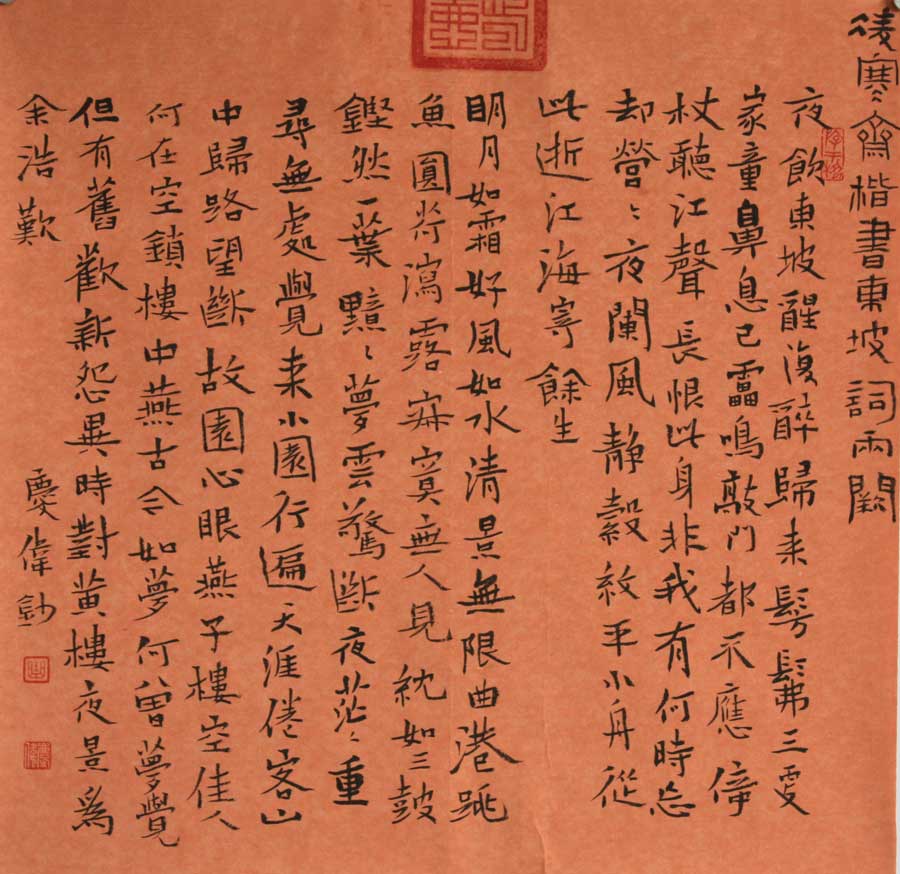 凌寒齋楷書東坡詞兩闋
夜飲東坡醒復醉歸来髣髴三更
家童鼻息已靁鳴敲門都不應倚
杖聽江聲長恨此身非我有何時忘
却營〻夜闌風靜縠紋平小舟從
此逝江海寄餘生
明月如霜好風如水清景無限曲港跳
魚圓荷瀉露寂寞無人見紞如三鼓
鏗然一葉黯〻夢雲驚斷夜茫〻重
尋無處覺来小園行遍天涯倦客山
中歸路望斷故園心眼燕子樓空佳人
何在空鎖樓中燕古今如夢何曾夢覺
但有舊歡新怨異時對黃樓夜景為
余浩歎
慶偉鈔